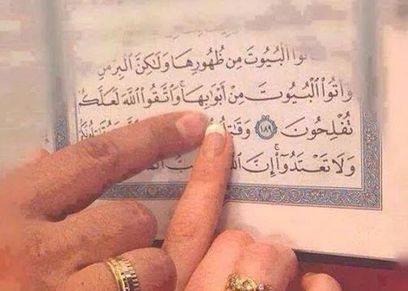 توا الْبُيُوتَ مِن ظُهُورِهَا وَلَٰكِنَّ الْبِرَّ مَنِ
وَأْتُوا الْبُيُوتَ مِنْ أَبْوَابِهَا وَاتَّقُوا اللَّهَ لَعَلَّكُمْ
تُفْلِحُونَ ١٨٩
وَلَا تَعْتَدُوا إِنَّ